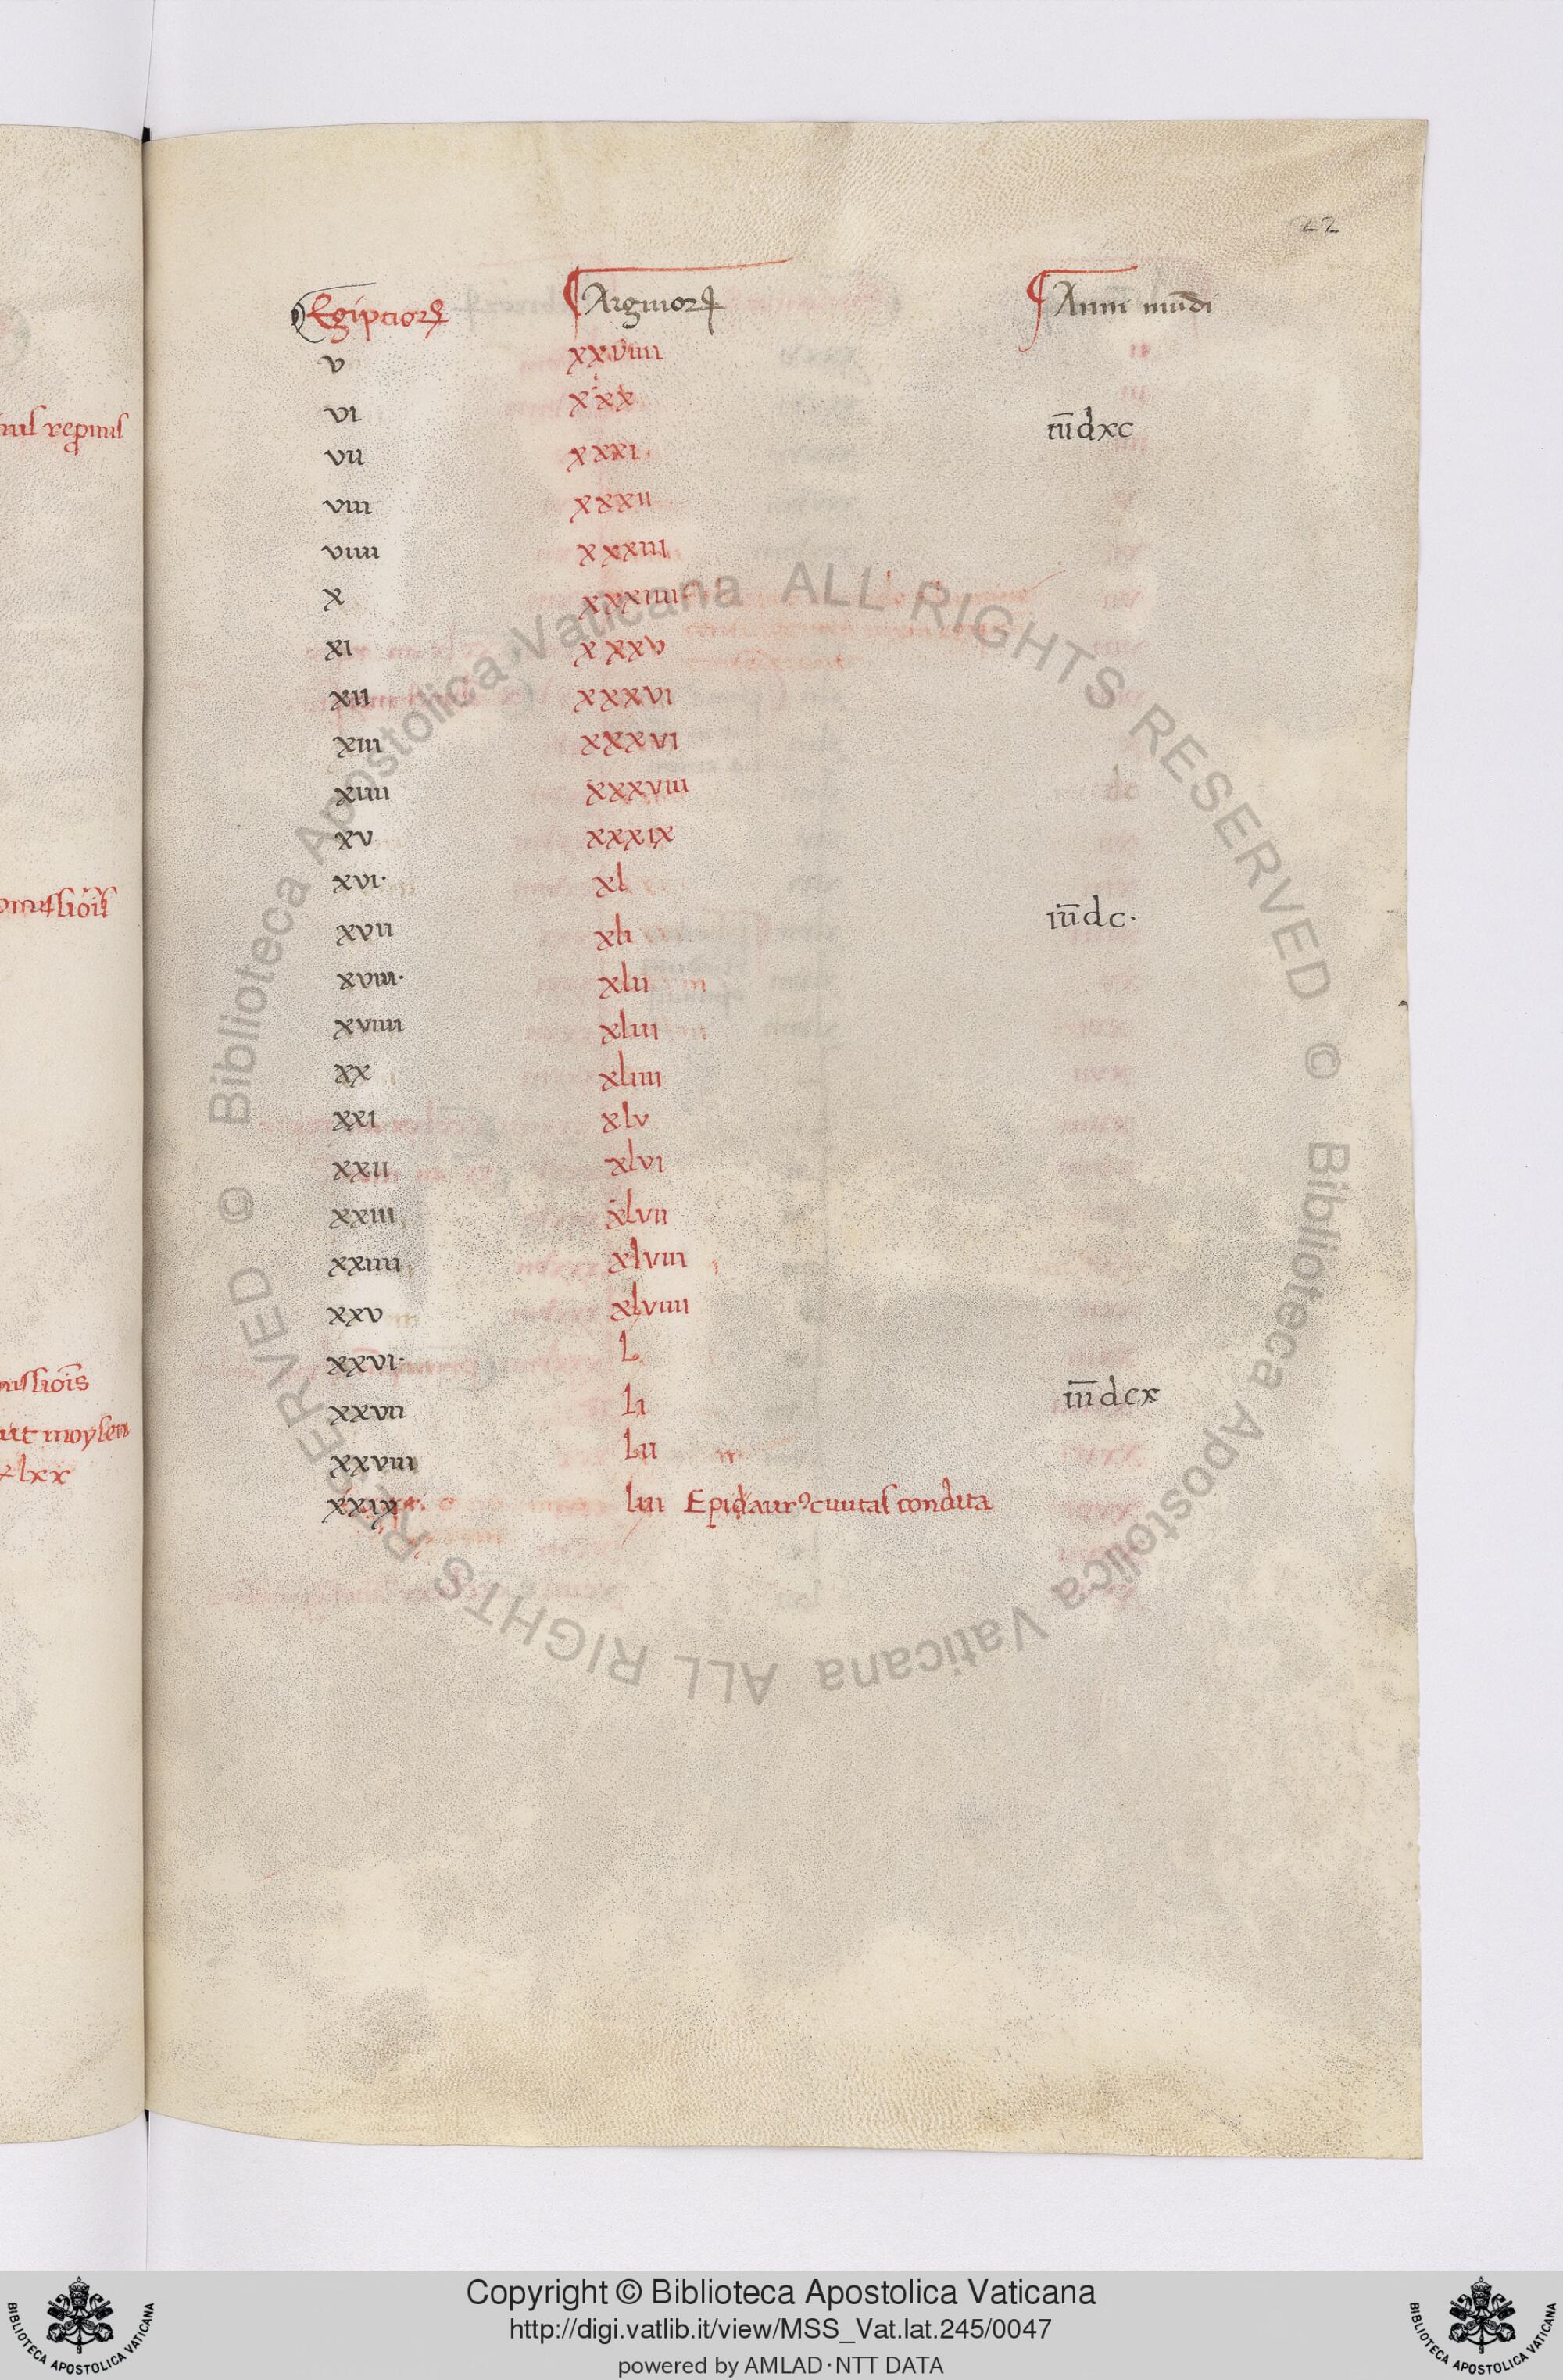 22
Egiptioꝝ Argiuoꝝ Anni mūdi
v xxviiii
vi xxx iīīdxc
vii xxxi
viii xxxii
viiii xxxiii
x xxxiiii
xi xxxv
xii xxxvi
xiii xxxvi
xiiii xxxviii
xv xxxix
xvi· xl
xvii xli iīīdc·
xviii· xlii
xviiii xliii
xx xliiii
xxi xlv
xxii xlvi
xxiii xlvii
xxiiii xlviii
xxv xlviiii
xxvi· L
xxvii Li iīīdcx
xxviii Lii
xxix liii Epidaurꝰ ciuitas condita
Copyright © Biblioteca Apostolica Vaticana
http://digi.vatlib.it/view/MSS_Vat.lat.245/0047
powered by AMLAD·NTT DATA
© Biblioteca Apostolica Vaticana ALL RIGHTS RESERVED
© Biblioteca Apostolica Vaticana ALL RIGHTS RESERVED
BIBLIOTECA APOSTOLICA VATICANA
BIBLIOTECA APOSTOLICA VATICANA